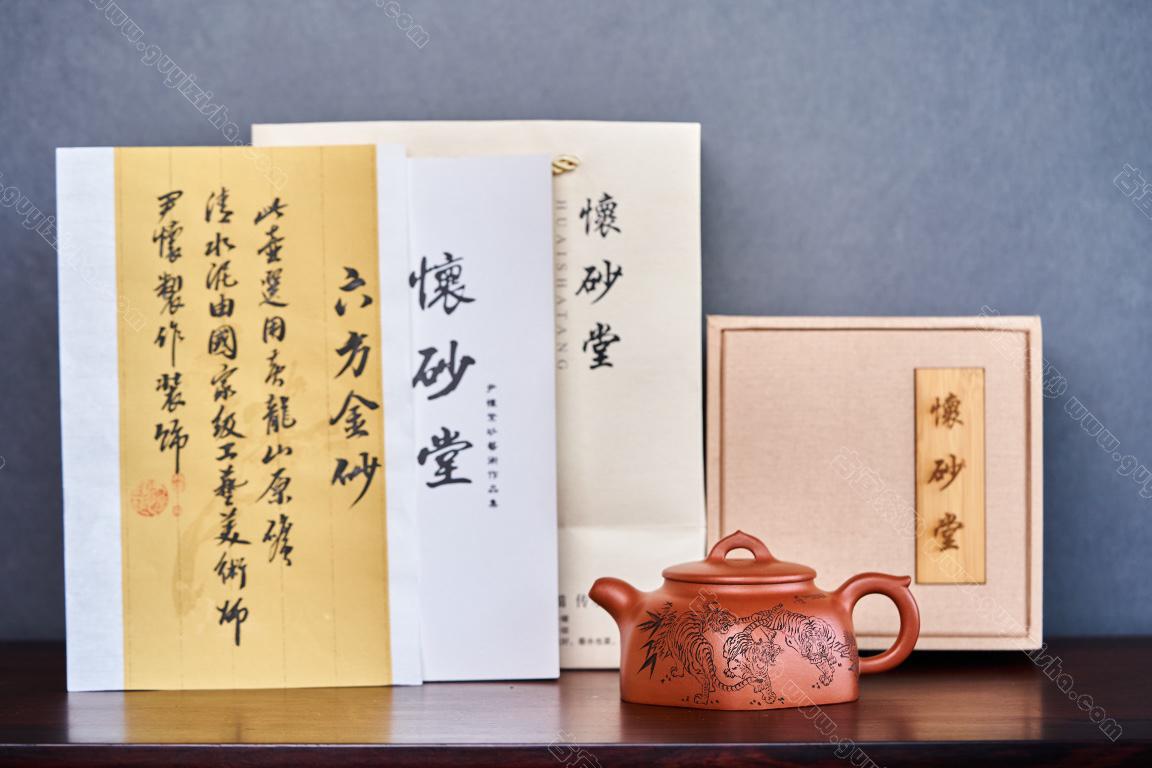 六方金砂
此壶選用黄龍山原礦
清水泥由國家级工藝美術师
尹懷製作装饰
懷砂堂
尹懷紫砂藝術作品集
懷砂堂
HUAISHATANG
懷砂堂
www.guyizisha.com